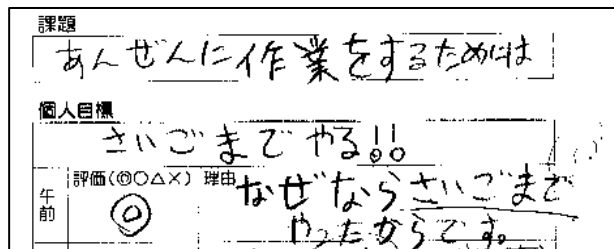 課題
あんぜんに作業をするためには
個人目標
さいごまでやる!!
午前
評価(◎○△×) 理由 なぜならさいごまで
◎ やったからです。